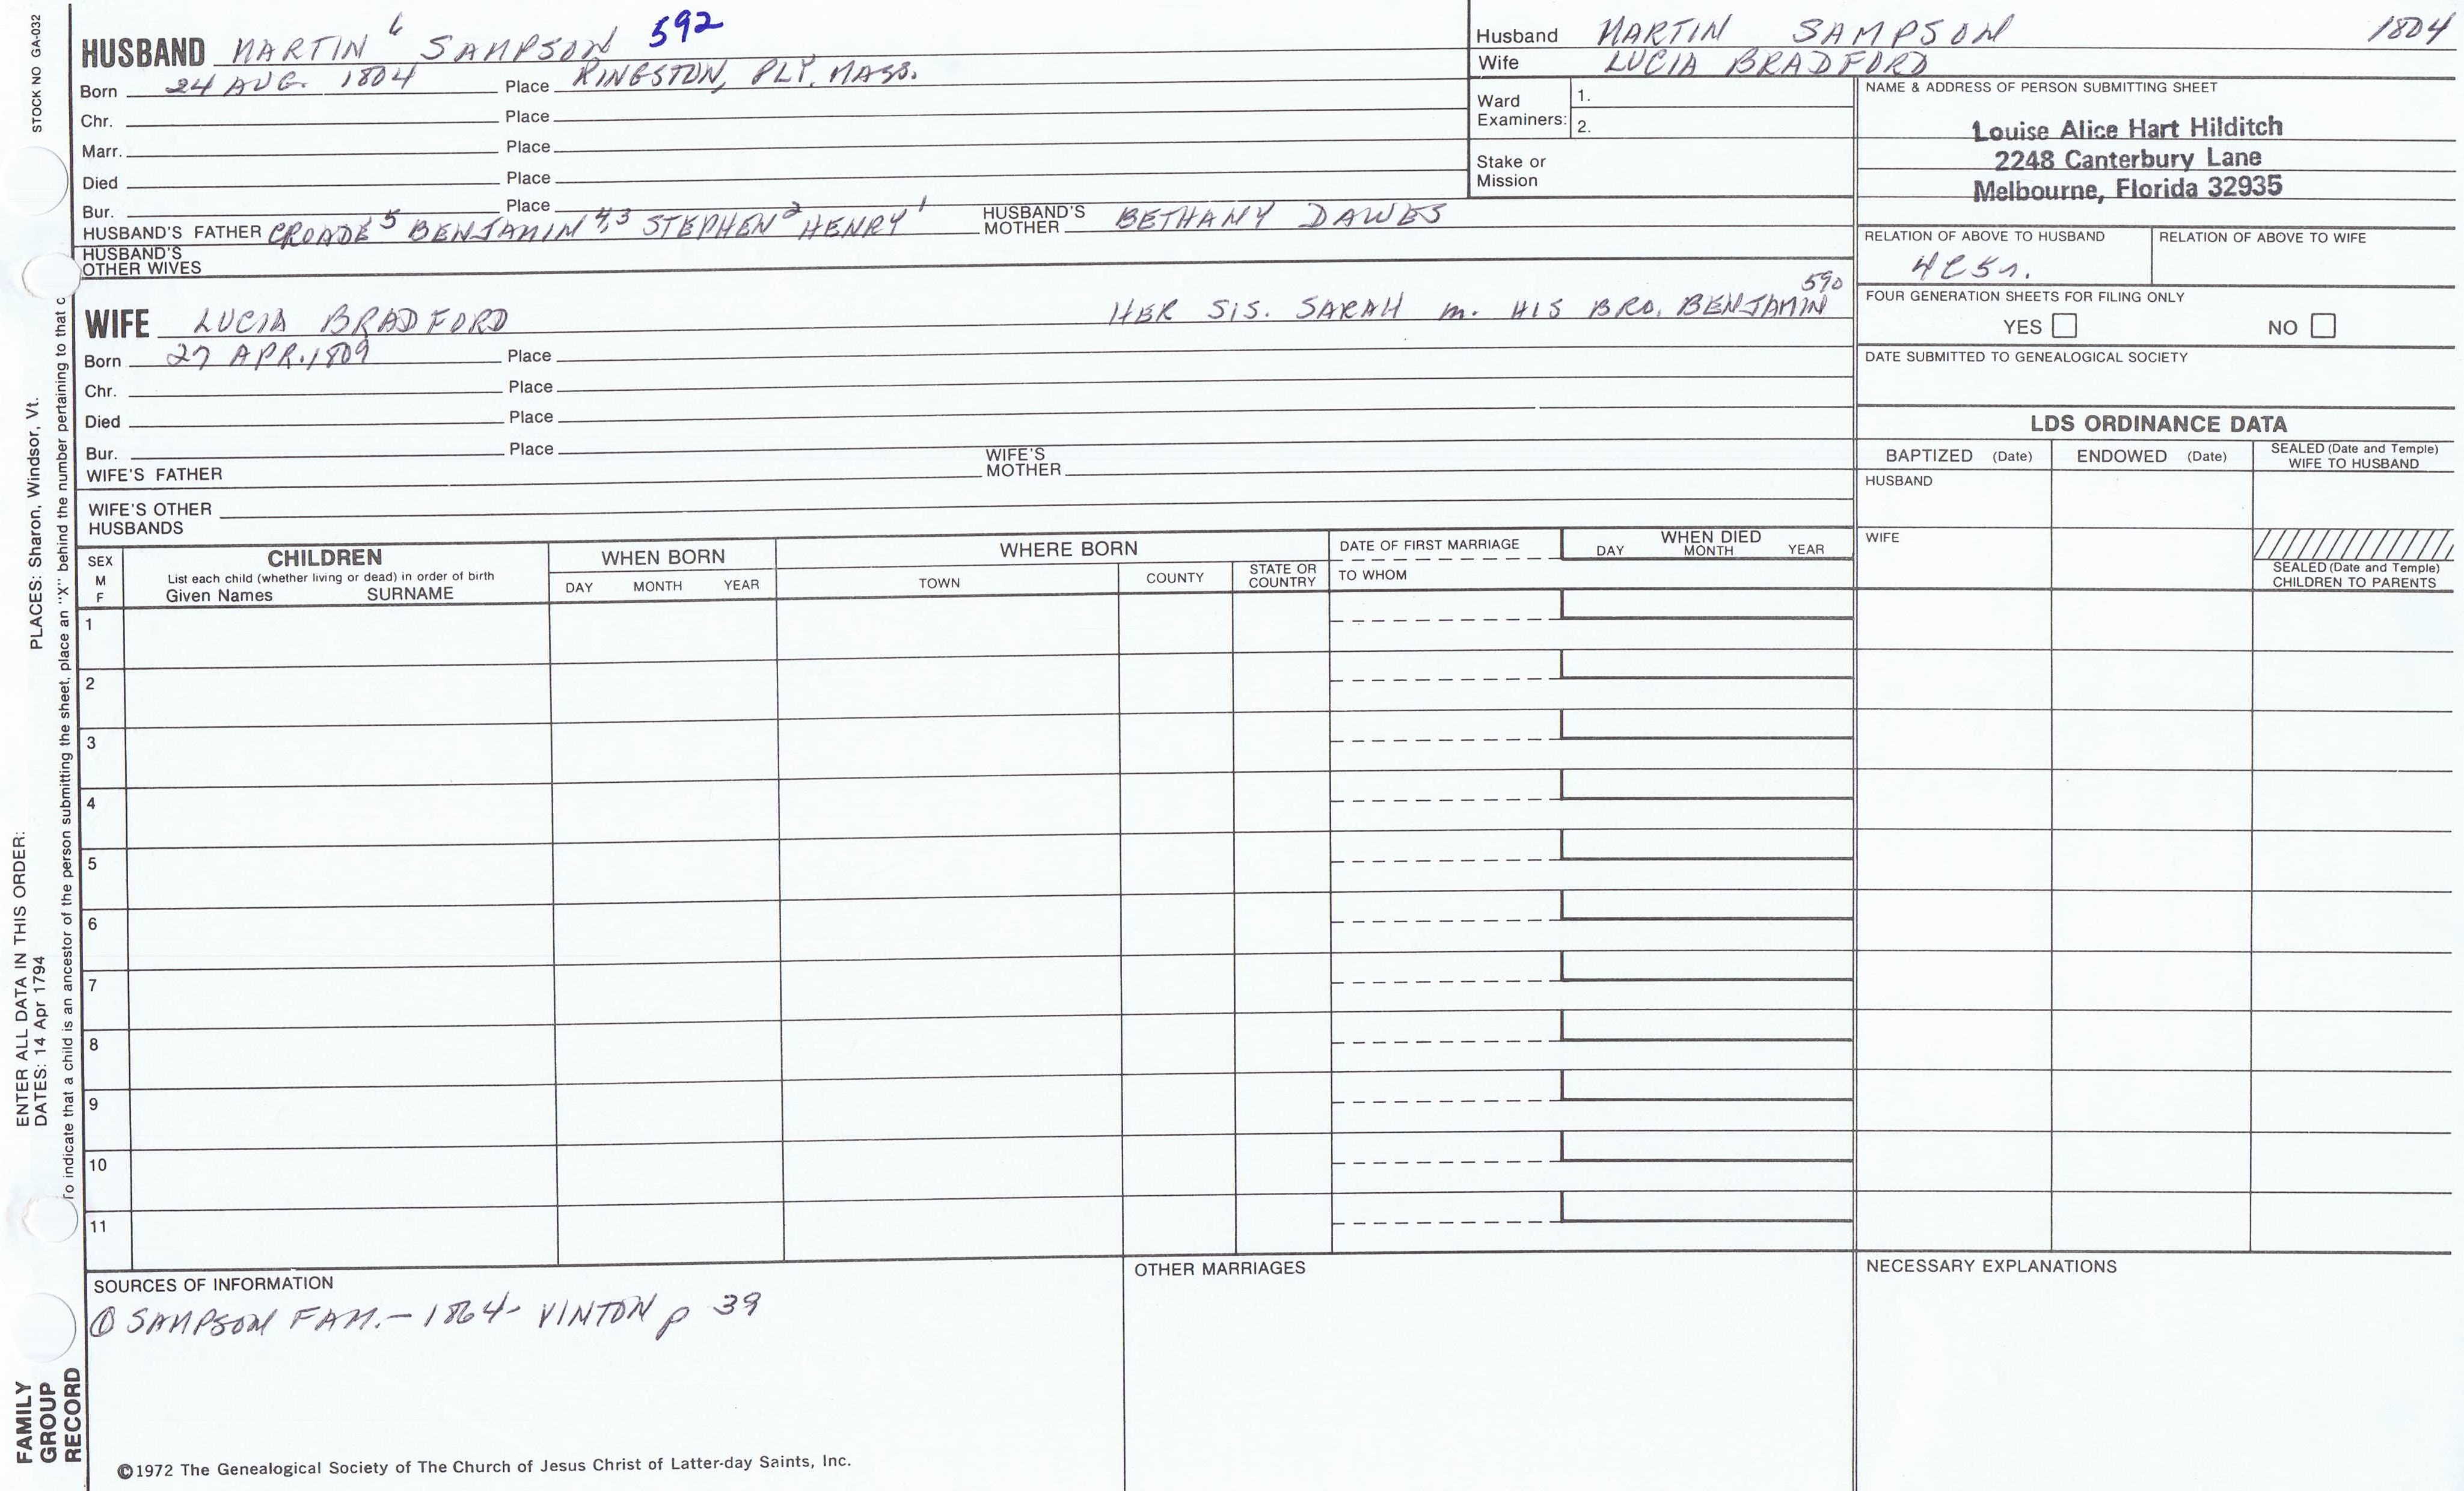 STOCK NO GA-032
PLACES: Sharon, Windsor, Vt.
ENTER ALL DATA IN THIS ORDER:
DATES: 14 Apr 1794
To indicate that a child is an ancestor of the person submitting the sheet, place an "X" behind the number pertaining to that c
FAMILY
GROUP
RECORD
HUSBAND MARTIN 6 SAMPSON 592
Born 24 AUG. 1804 Place KINGSTON, PLY. MASS.
Chr. Place
Marr. Place
Died Place
Bur. Place
HUSBAND'S FATHER CROADE 5 BENJAMIN 4,3 STEPHEN 2 HENRY 1 HUSBAND'S MOTHER BETHANY DAWES
HUSBAND'S
OTHER WIVES
WIFE LUCIA BRADFORD HER SIS. SARAH m. HIS BRO. BENJAMIN 590
Born 27 APR. 1809 Place
Chr. Place
Died Place
Bur. Place
WIFE'S FATHER WIFE'S MOTHER
WIFE'S OTHER
HUSBANDS
Husband MARTIN SAMPSON 1804
Wife LUCIA BRADFORD
Ward
Examiners:
1.
2.
Stake or
Mission
NAME & ADDRESS OF PERSON SUBMITTING SHEET
Louise Alice Hart Hilditch
2248 Canterbury Lane
Melbourne, Florida 32935
RELATION OF ABOVE TO HUSBAND RELATION OF ABOVE TO WIFE
4C5r.
FOUR GENERATION SHEETS FOR FILING ONLY
YES NO
DATE SUBMITTED TO GENEALOGICAL SOCIETY
LDS ORDINANCE DATA
BAPTIZED (Date) ENDOWED (Date) SEALED (Date and Temple)
WIFE TO HUSBAND
HUSBAND
WIFE
SEALED (Date and Temple)
CHILDREN TO PARENTS
SEX
M
F
CHILDREN
List each child (whether living or dead) in order of birth
Given Names SURNAME
WHEN BORN
DAY MONTH YEAR
WHERE BORN
TOWN COUNTY STATE OR
COUNTRY
DATE OF FIRST MARRIAGE
TO WHOM
WHEN DIED
DAY MONTH YEAR
1
2
3
4
5
6
7
8
9
10
11
SOURCES OF INFORMATION
① SAMPSON FAM. - 1864 - VINTON p 39
OTHER MARRIAGES
NECESSARY EXPLANATIONS
©1972 The Genealogical Society of The Church of Jesus Christ of Latter-day Saints, Inc.